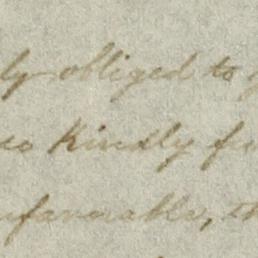 ly obliged to
so kindly
unfavorable,